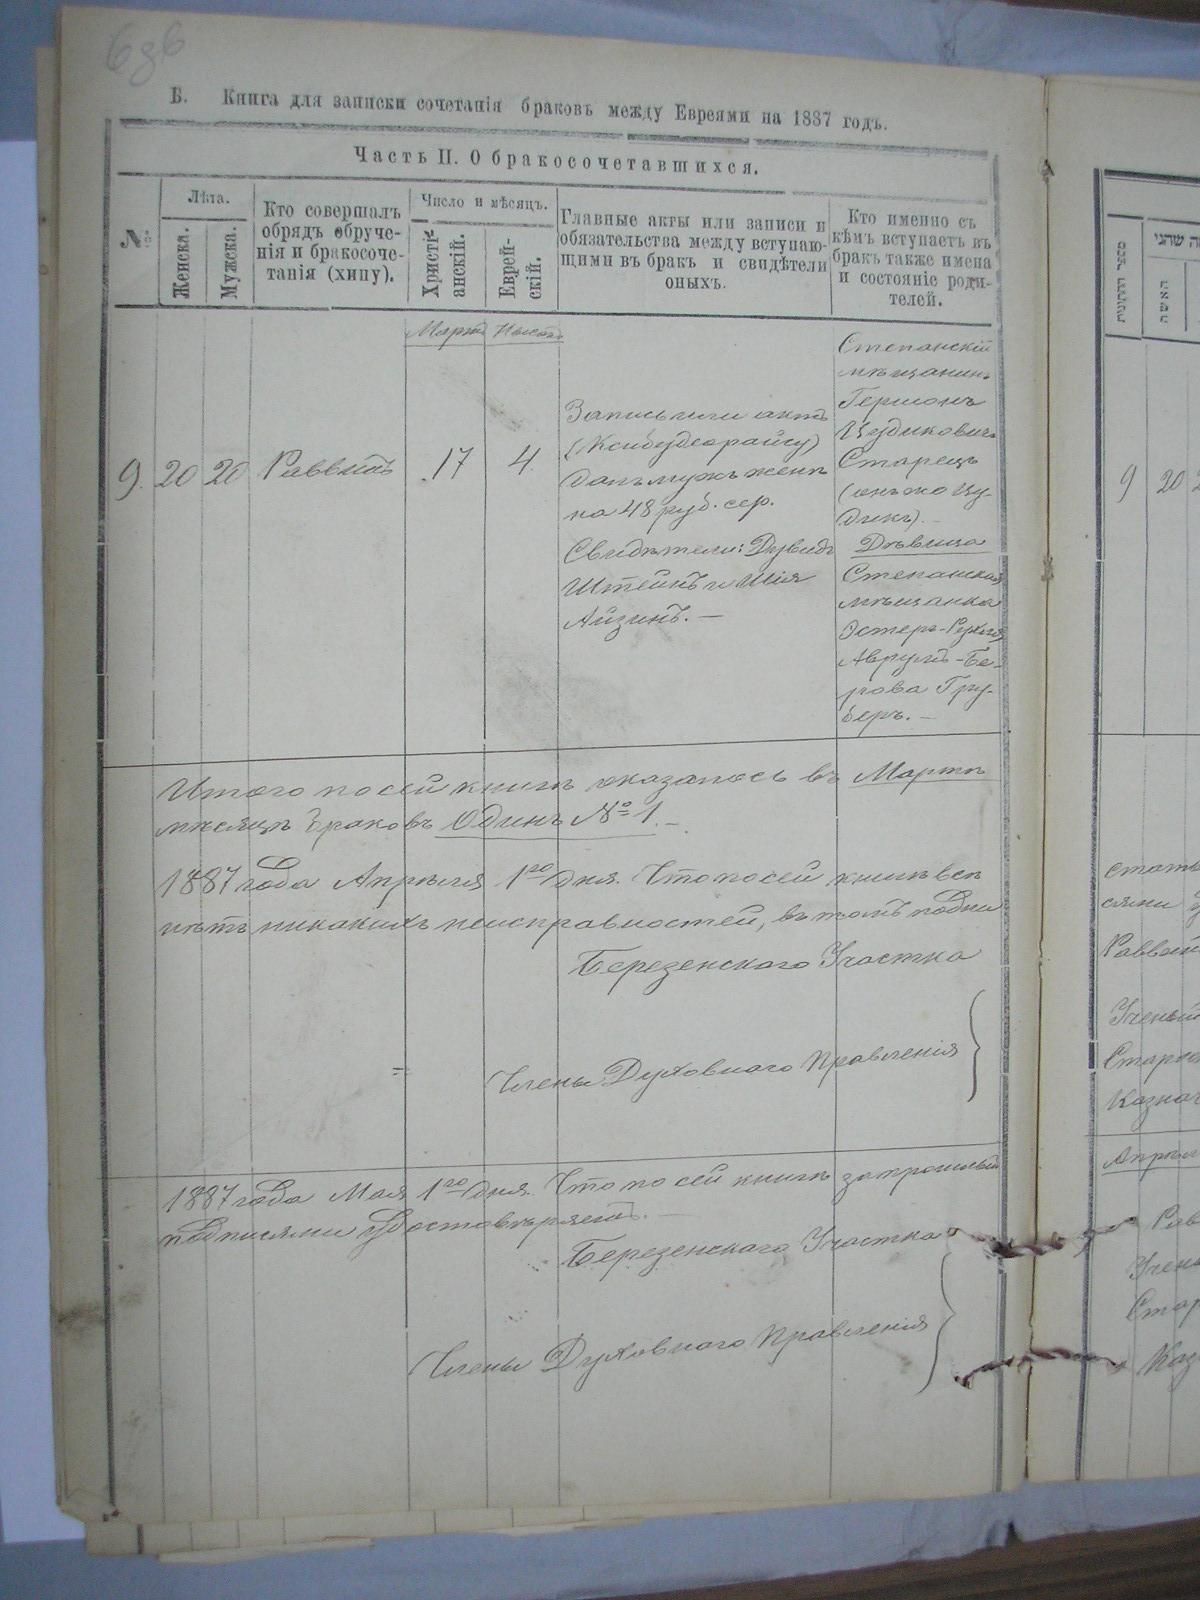 636
Б. Книга для записки сочетанія браковъ между Евреями на 1887 годъ.
Часть II. О бракосочетавшихся.
№
Лѣта.
Женска.
Мужска.
Кто совершалъ
обрядъ обруче-
нія и бракосоче-
танія (хипу).
Число и мѣсяцъ.
Христі-
анскій.
Еврей-
скій.
Главные акты или записи и
обязательства между вступаю-
щими въ бракъ и свидѣтели
оныхъ.
Кто именно съ
кѣмъ вступаетъ въ
бракъ также имена
и состояніе роди-
телей.
Мартъ
9. 20 20 Раввинъ 17 4
Запись или актъ
далъ мужъ женѣ
на 48 руб. сер.
Свидѣтели: Дувидъ
Штейнъ и Шія
Айзинъ. —
Степанскій
мѣщанинъ
Гершонъ
Цудиковичъ
Старецъ
(онъ же Цу-
дикъ). —
Дѣвица
Степанская
мѣщанка
Эстеръ-Рухля
Аврумъ-Бе-
рова Гру-
беръ. —
Итого по сей книгѣ оказалось въ Мартѣ
мѣсяцѣ браковъ Одинъ № 1. —
1887 года Апрѣля 1го дня. Что по сей книгѣ всѣ
нѣтъ никакихъ неисправностей, въ томъ подпи
Березенскаго Участка
Члены Духовнаго Правленія
1887 года Мая 1го дня. Что по сей книгѣ за прошлый
подписями удостовѣряетъ. —
Березенскаго Участка
Члены Духовнаго Правленія
מספר הזקנות
האשה
9 20
стать
сями
Раввин
Ученый
Старос
Казнач
Апрѣл
Рав
Учен
Стар
Каз